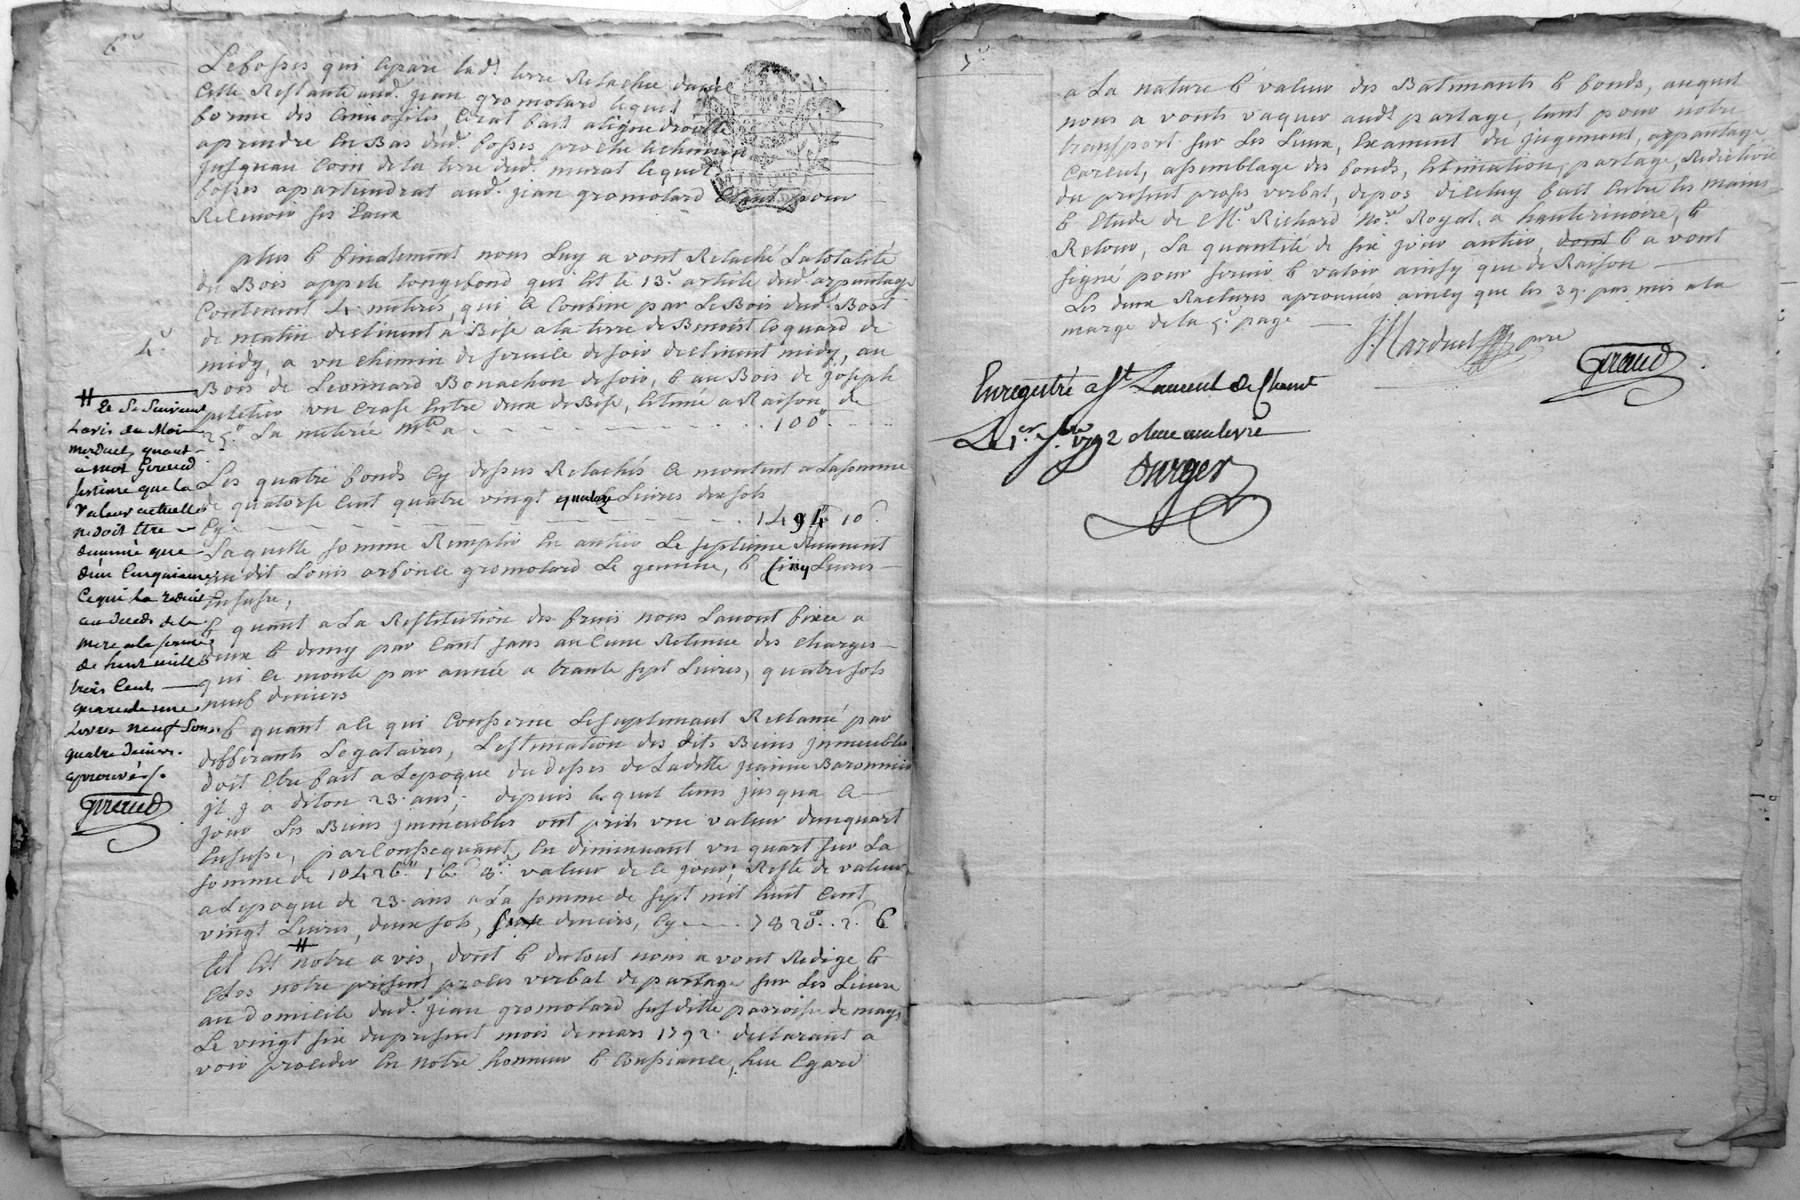 6e
Le fosses qui Separe lad. terre Relachee davec
Celle Restante aud. jean gromolard lequel
forme des Sera fait aligne droitte
aprendre En Bas dud. fosses proche lechemin
jusqueau Coin de la terre dud. murat lequel
fosses apartiendrat aud. jean gromolard Etant pour
Relevoir ses Eaux
plus & finalement nous luy a vont Relaché Latotalité
du Bois appelé longefond qui Est le 13e. article dud. arpantage
Contenent 4 meterés, qui Ce Confine par Le Bois dud. Bost
de matin declinent a Bise a la terre de Benoist Coquard de
4e.
midy, a un chemin de servile de soir declinent midy, au
Bois de Leonnard Bonachon de soir, & au Bois de joseph
peletier un Erase Entre deux de Bise, Estimé a Raison de
25 la meterée mte a - - - - 100
Les quatre fonds Cy dessus Relachés Ce montent a La somme
de quatorse Cent quatre vingt quatorze Livres dix sols
Cy - - - - 1494 10
Laquelle somme Remplir En antier Le septieme Revenent
au dit Louis arsonle gromolard Le gemine, & Cinq Livres
Ensusse,
& quant a La Restitution des fruis nous Lavont fixée a
deux & demy par Cant sans aucune Retenue des charges
qui Ce monte par année a trante sept Livres, quatre sols
neuf deniers
& quant a Ce qui Conserne Lesuplemant Reclamé par
differants Legataires, Lestimation des dits Biens jmmeubles
doit Etre fait a Lepoque du desses de Ladette jeanne Baronnier
jl j a diton 23. ans; depuis lequel tems jusqua Ce
jour Les Biens jmmeubles ont pris une valeur dunquart
Ensusse, par Conssequant, En diminuant un quart sur La
somme de 10426 16 8 valeur de Ce jour; Reste de valeur
a Lepoque de 23. ans a La somme de sept mil huit Cent
vingt Livres, deux sols, six deniers, Cy - - - - 7820. 2. 6
tel Est notre avis, dont & dutout nous a vont Redige &
Clos notre présent proces verbal de partage sur Les Lieux
au domicile dud. jean gromolard susditte parroisse de mays
Le vingt six du présent mois de mars 1792. declarant a
voir proceder En notre honneur & Consiance, heu Egard
# Et Se Suivent
Lavis du Moi
merduel, quant
à moi Gireud
Jestime que la
Valeur actuelle
ne doit être
diminué que
dun Cinquieme
Ce qui la reduit
au deceds de la
mere a la somme
de huit mille
trois Cents
quarente une
Livres neuf Sous
quatre deniers.
aprouvés/.
Gireud
5e
a La nature & valeur des Batimants & fonds, auquel
nous a vonts vaquer audt partage, tant pour notre
transport sur Les Lieux, Exament du jugement, arpantage
Careul, assemblage des fonds, Estimation, partage, Redection
du present proses verbal, depos dicelluy fait Entre les mains
& Etude de Me. Richard Nore. Royal a hauterivoire, &
Retour, La quantité de six jour antier, dont & a vont
signé pour servir & valoir ainsy que de Raison
Les deux Ractures aprouvées ainsy que les 39. pas mis a la
marge de la 5e. page
J. Marduel pere
Gireud
Enregistré a St. Laurent de Chamt
Le 1er. 7bre 1792
Durger